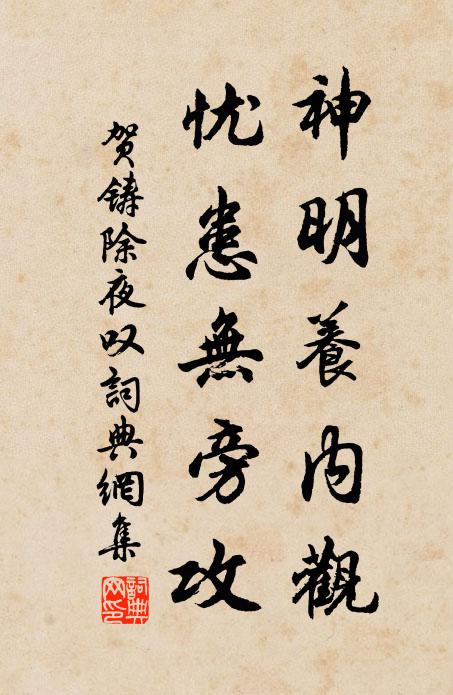 神明養內觀
忧患無旁攻
贺鑄除夜叹詞典網集
詞典網印